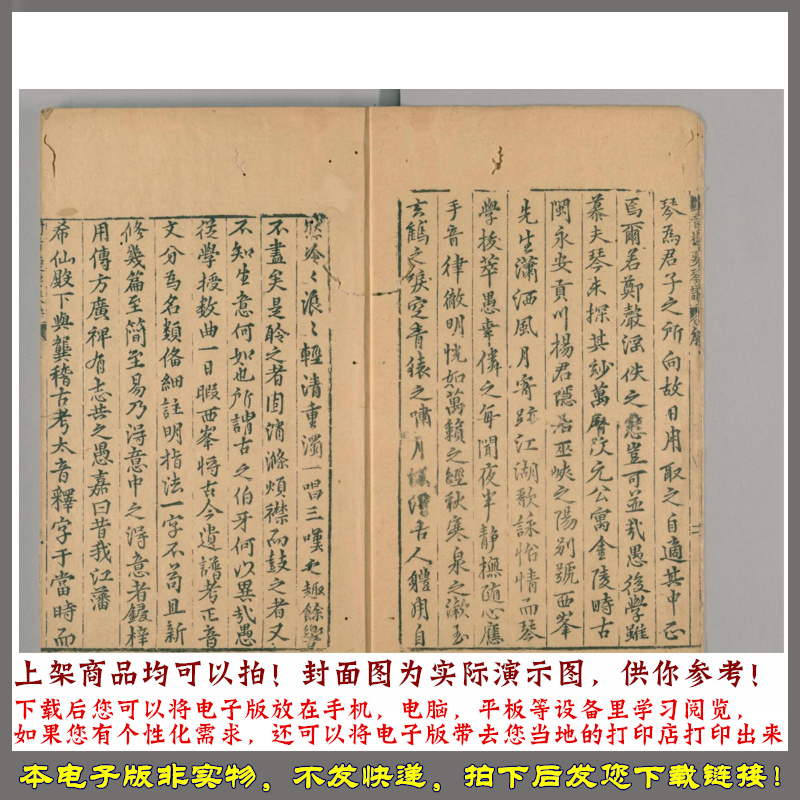 琴為君子之所向故日用取之自適其中正
焉爾若鄭聲滛佚之惷豈可並哉愚後學雖
慕夫琴未探其玅萬曆改元公寓金陵時古
閩永安貢川楊君隱居巫峽之陽别號西峯
先生瀟洒風月寄跡江湖歌詠怡情而琴
學拔萃愚幸倂之每聞夜半靜撫隨心應
手音律徹明恍如萬籟之經秋寒泉之漱玉
玄鶴之唳空青猿之嘯月 古人軆用自
然冷〻浪〻輕清重濁一唱三嘆 趣餘
不盡矣是聆之者固消滌煩襟而鼓之者又
不知生意何如也所謂古之伯牙何以異哉愚
從學授数曲一日暇西峯将古今遺譜考正音
文分為名類俻細註明指法一字不苟且新
修幾篇至簡至易乃淂意中之淂意者鋟梓
用傳方廣裨有志哉之愚嘉曰昔我江藩
希仙殿下與龔稽古考太音釋字于當時而
上架商品均可以拍！封面图为实际演示图，供你参考！
下载后您可以将电子版放在手机，电脑，平板等设备里学习阅览，
如果您有个性化需求，还可以将电子版带去您当地的打印店打印出来
本电子版非实物，不发快递，拍下后发您下载链接！